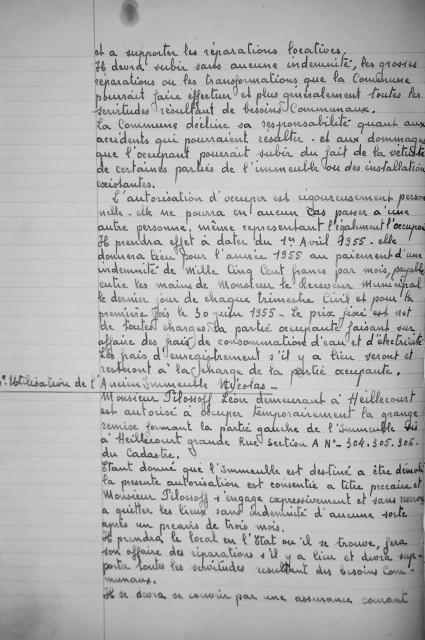 et a supporter les réparations locatives.
Il devra subir sans aucune indemnité, les grosses
réparations ou les transformations que la Commune
pourrait faire effectuer et plus généralement toutes les
servitudes résultant de besoins Communaux.
La Commune décline sa responsabilité quant aux
accidents qui pourraient résulter - et aux dommages
que l'occupant pourrait subir du fait de la vétusté
de certaines parties de l'immeuble ou des installation
existantes.
L'autorisation d'occuper est rigoureusement person
nelle - elle ne pourra en aucun cas passer a une
autre personne, même représentant légalement l'occupan
Il prendra effet à dater du 1er Avril 1955 - elle
donnera lieu pour l'année 1955 au paiement d'une
indemnité de Mille Cinq Cent francs par mois, payable
entre les mains de Monsieur le Receveur Municipal
le dernier jour de chaque trimestre Civil et pour la
première fois le 30 juin 1955 - Le prix fixé est net
de toutes charges la partie occupante faisant son
affaire des frais de consommation d'eau et d'électricité
Les frais d'enregistrement s'il y a lieu seront et
resteront à la charge de la partie occupante.
Utilisation de l'Ancien Immeuble Nycolas -
Monsieur Pelossoff Léon demeurant à Heillecourt
est autorisé a occuper temporairement la grange
remise formant la partie gauche de l'Immeuble sis
à Heillecourt grande Rue Section A N° 304.305.306.
du Cadastre.
Etant donné que l'Immeuble est destiné a être démoli
la présente autorisation est consentie a titre précaire et
Monsieur Pelossoff s'engage expressivement et sans réserve
a quitter les lieux sans indemnité d'aucune sorte
après un préavis de trois mois.
Il prendra le local en l'Etat ou il se trouve, fera
son affaire des réparations s'il y a lieu et devra sup-
porter toutes les servitudes resultant des besoins Com-
munaux.
Il se devra se couvrir par une assurance courant